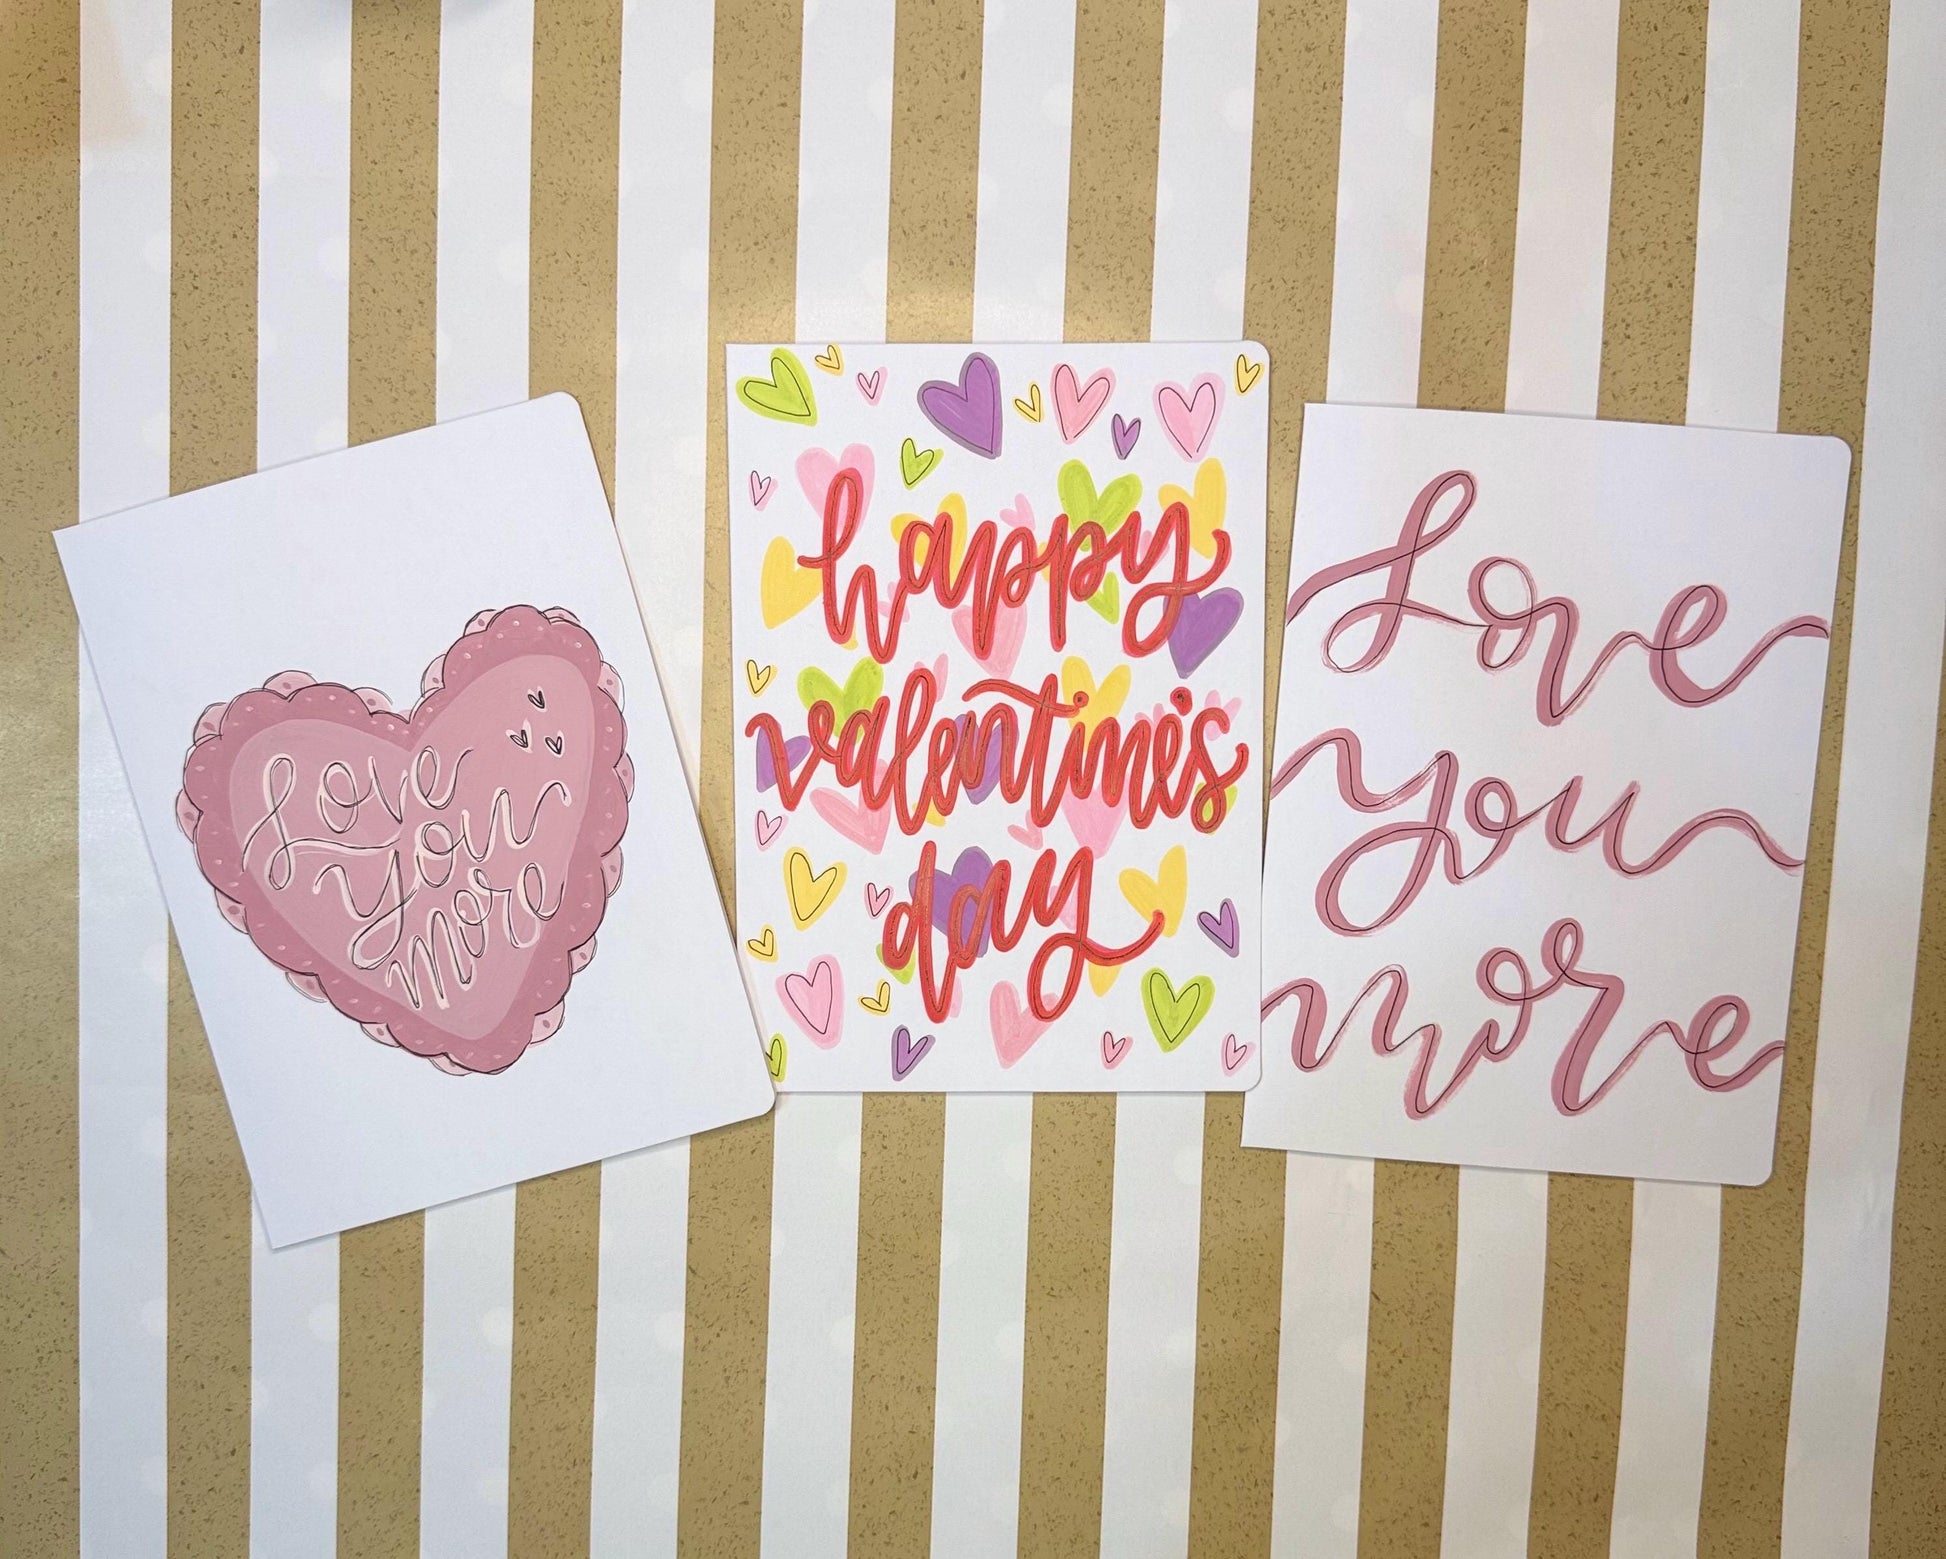 Love
You
More
happy
valentine's
day
Love
you
more